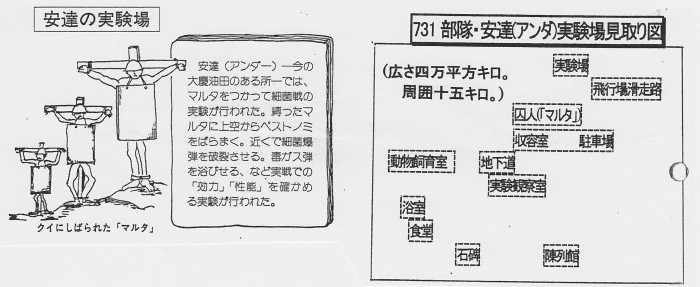 安達の実験場
安達（アンダー）—今の
大慶油田のある所—では、
マルタをつかって細菌戦の
実験が行われた。縛ったマ
ルタに上空からペストノミ
をばらまく。近くで細菌爆
弾を破裂させる。毒ガス弾
を浴びせる、など実戦での
「効力」「性能」を確かめ
る実験が行われた。
クイにしばられた「マルタ」
731 部隊・安達(アンダ)実験場見取り図
(広さ四万平方キロ。
周囲十五キロ。)
実験場
飛行場滑走路
囚人(「マルタ」)
収容室
駐車場
動物飼育室
地下道
実験観察室
浴室
食堂
石碑
陳列館